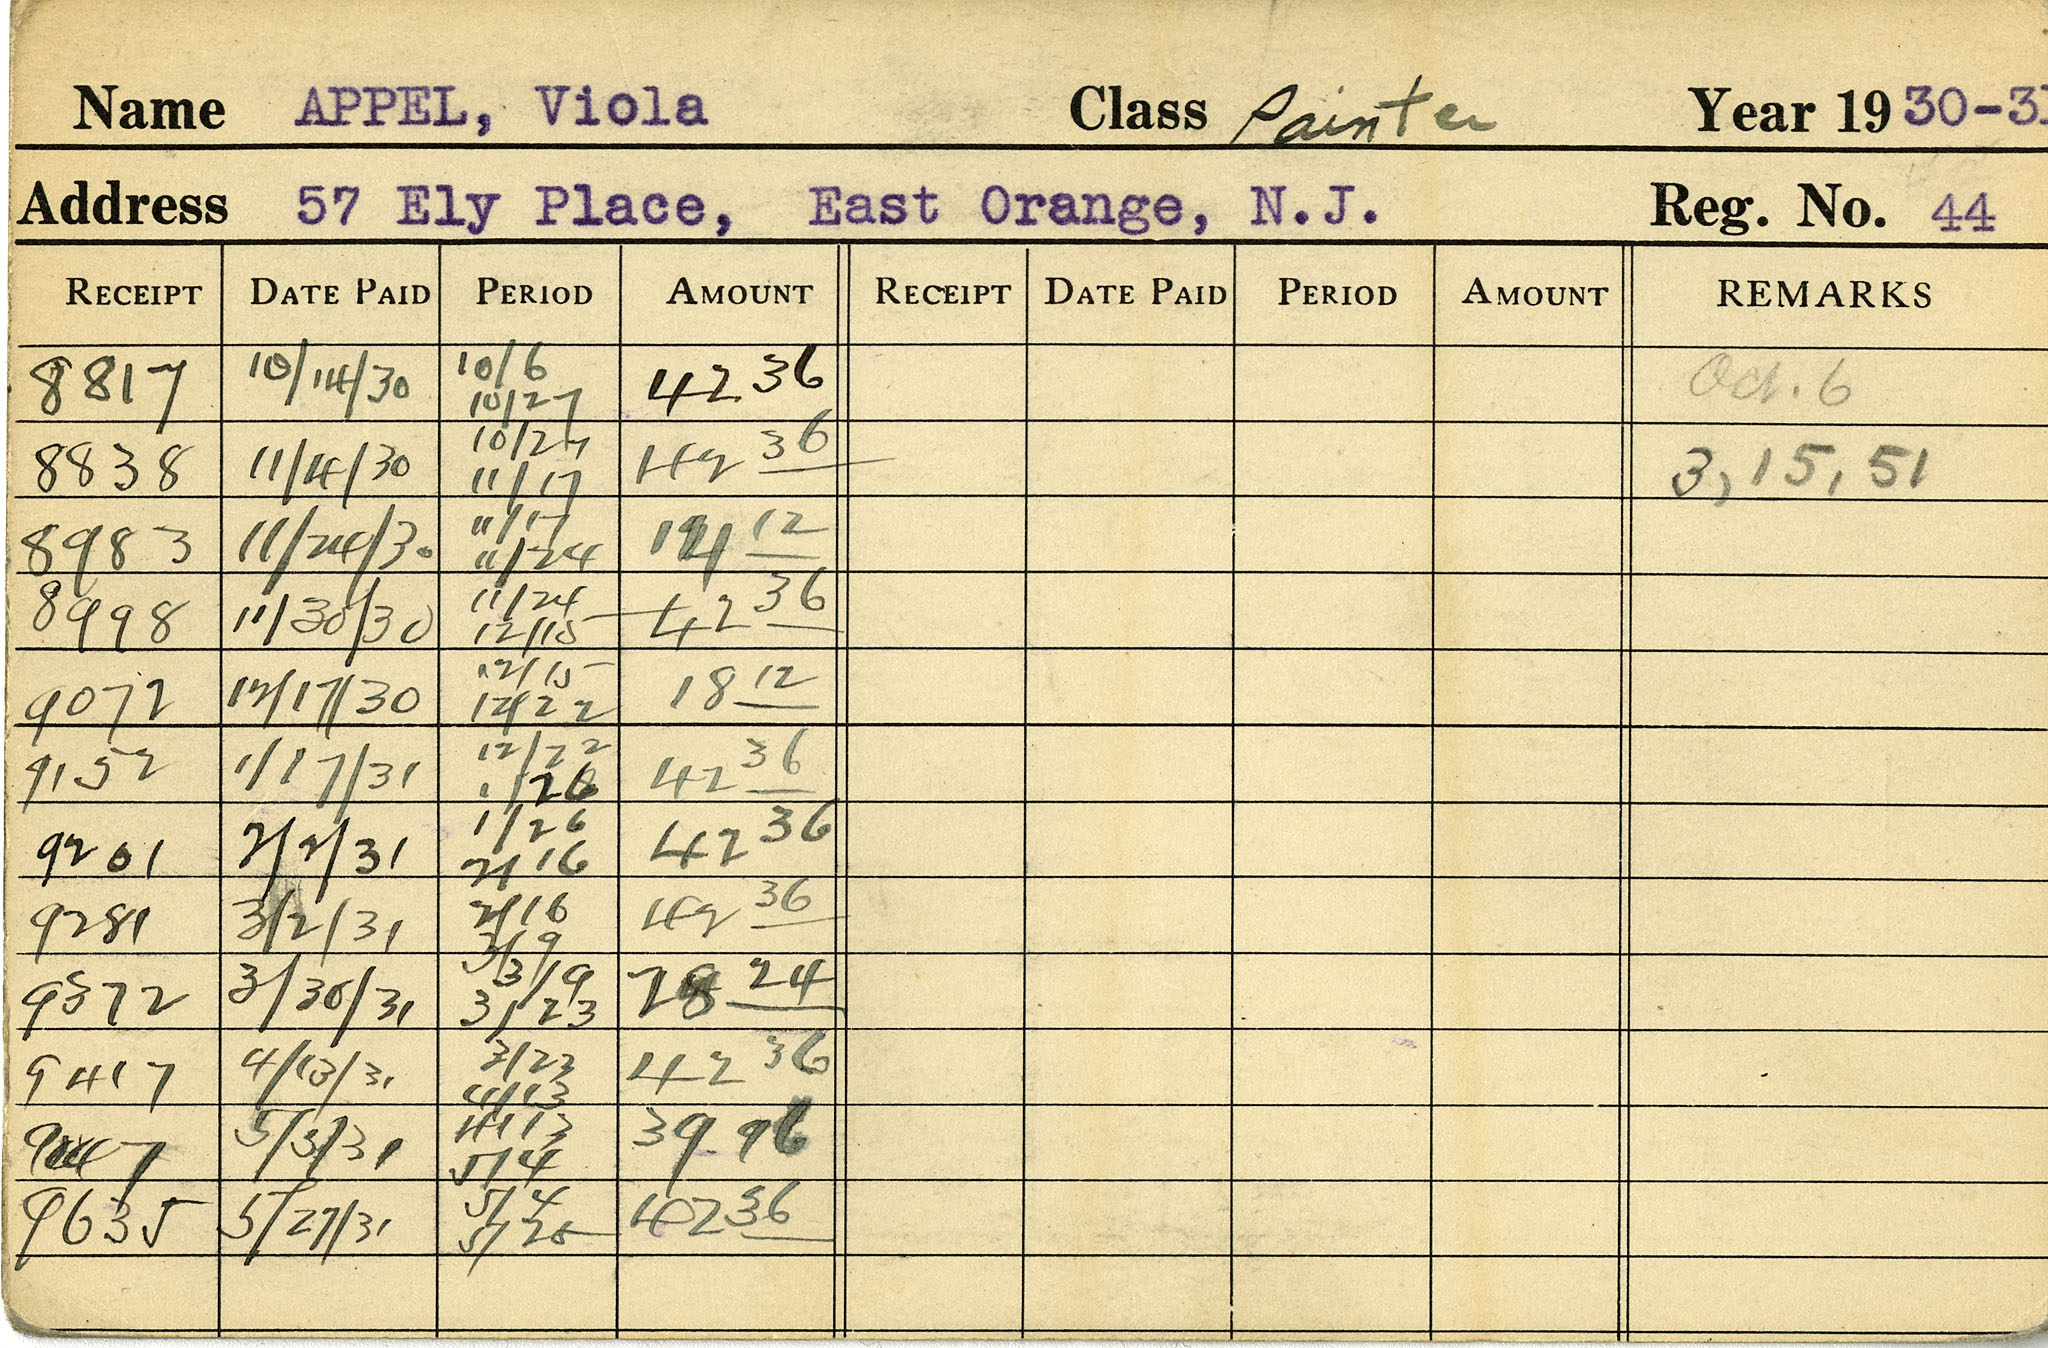 Name APPEL, Viola Class Painter Year 19 30-31
Address 57 Ely Place, East Orange, N.J. Reg. No. 44
RECEIPT DATE PAID PERIOD AMOUNT RECEIPT DATE PAID PERIOD AMOUNT REMARKS
8817 10/14/30 10/6 10/27 42 36 Oct. 6
8838 11/4/30 10/27 11/17 42 36 3, 15, 51
8983 11/24/30 11/17 11/24 12
8998 11/30/30 11/24 12/15 42 36
9072 12/17/30 12/15 12/22 18 12
9152 1/17/31 12/22 1/26 42 36
9201 2/2/31 1/26 2/16 42 36
9281 3/2/31 2/16 3/9 42 36
9372 3/30/31 3/9 3/23 28 24
9417 4/13/31 3/23 4/13 42 36
5/3/31 4/13 5/4 39 96
9635 5/27/31 5/4 5/25 42 36